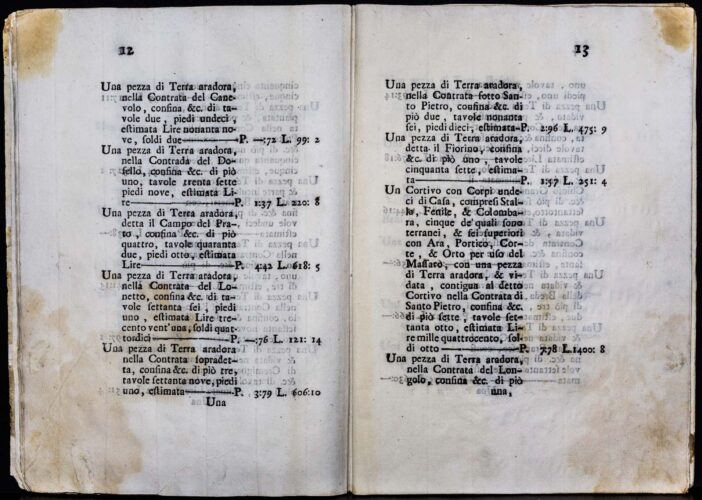 12
Una pezza di Terra aradora,
nella Contrata del Cane-
volo, confina &c. di ta-
vole due, piedi undeci,
estimata Lire nonanta no-
ve, soldi due P. —:72 L. 99: 2
Una pezza di Terra aradora,
nella Contrada del Do-
sello, confina &c. di piò
uno, tavole trenta sette
piedi nove, estimata Li-
re P. 1:37 L. 220: 8
Una pezza di Terra aradora,
detta il Campo del Pra-
to, confina &c. di piò
quattro, tavole quaranta
due, piedi otto, estimata
Lire P. 4:42 L. 618: 5
Una pezza di Terra aradora,
nella Contrata del Lo-
netto, confina &c. di ta-
vole settanta sei, piedi
uno, estimata Lire tre-
cento vent'una, soldi quat-
tordici P. —:76 L. 121: 14
Una pezza di Terra aradora
nella Contrata sopradet-
ta, confina &c. di piò tre,
tavole settanta nove, piedi
uno, estimata P. 3:79 L. 606:10
Una
13
Una pezza di Terra aradora,
nella Contrata sotto San-
to Pietro, confina &c. di
piò due, tavole nonanta
sei, piedi dieci, estimata P. 2:96 L. 475: 9
Una pezza di Terra aradora,
detta il Fiorino, confina
&c. di piò uno, tavole
cinquanta sette, estima-
ta P. 1:57 L. 251: 4
Un Cortivo con Corpi unde-
ci di Casa, compresi Stal-
lo, Fenile, & Colomba-
ra, cinque de' quali sono
terranei, & sei superiori
con Ara, Portico, Cor-
te, & Orto per uso del
Massaro, con una pezza
di Terra aradora, & vi-
data, contigua al detto
Cortivo nella Contrata di
Santo Pietro, confina &c.
di piò sette, tavole set-
tanta otto, estimata Li-
re mille quattrocento, sol-
di otto P. 7:78 L. 1400: 8
Una pezza di Terra aradora,
nella Contrata del Lon-
golo, confina &c. di piò
una,